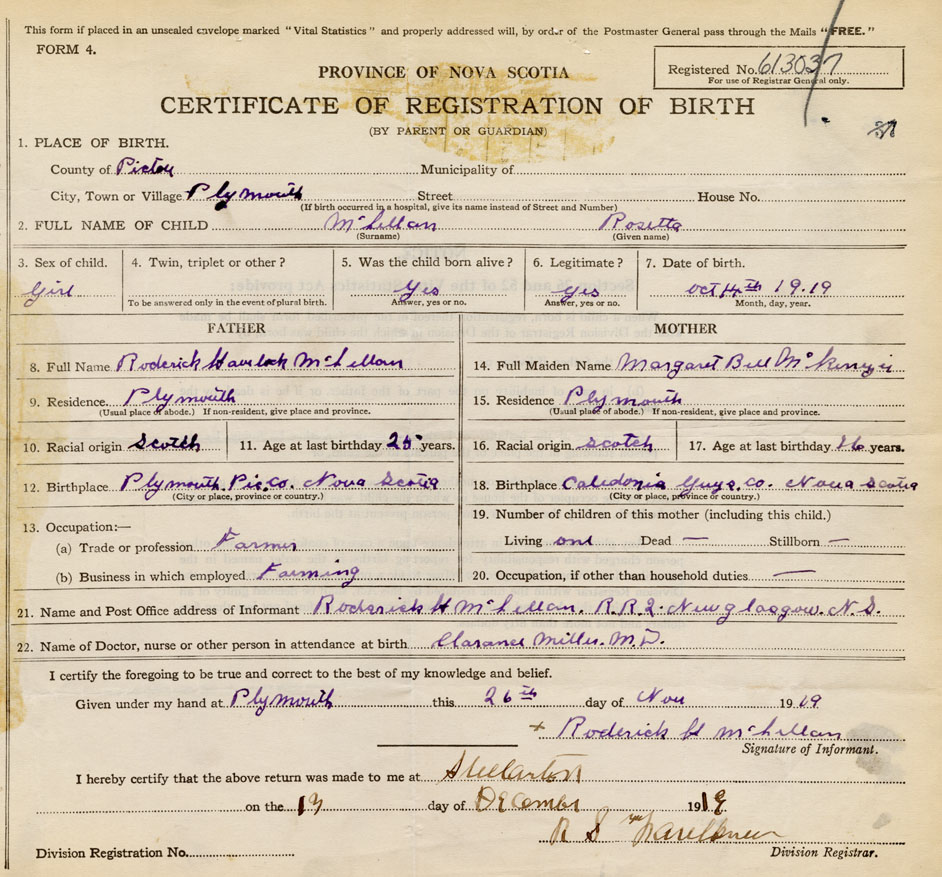 This form if placed in an unsealed envelope marked "Vital Statistics" and properly addressed will, by order of the Postmaster General pass through the Mails "FREE."
FORM 4.
Registered No. 613037
For use of Registrar General only.
PROVINCE OF NOVA SCOTIA
CERTIFICATE OF REGISTRATION OF BIRTH
(BY PARENT OR GUARDIAN)
1. PLACE OF BIRTH.
County of Pictou Municipality of
City, Town or Village Plymouth Street House No.
(If birth occurred in a hospital, give its name instead of Street and Number)
2. FULL NAME OF CHILD McLellan Rosetta
(Surname) (Given name)
3. Sex of child. 4. Twin, triplet or other? 5. Was the child born alive? 6. Legitimate? 7. Date of birth.
Girl Yes Yes Oct 4th 1919
To be answered only in the event of plural birth. Answer, yes or no. Answer, yes or no. Month, day, year.
FATHER
8. Full Name Roderick Havelock McLellan
9. Residence. Plymouth
(Usual place of abode.) If non-resident, give place and province.
10. Racial origin Scotch 11. Age at last birthday 25 years.
12. Birthplace Plymouth Pic. Co. Nova Scotia
(City or place, province or country.)
13. Occupation:—
(a) Trade or profession Farmer
(b) Business in which employed Farming
MOTHER
14. Full Maiden Name Margaret Bell McKenzie
15. Residence Plymouth
(Usual place of abode.) If non-resident, give place and province.
16. Racial origin Scotch 17. Age at last birthday 26 years.
18. Birthplace Caledonia Guys. Co. Nova Scotia
(City or place, province or country.)
19. Number of children of this mother (including this child.)
Living one Dead — Stillborn —
20. Occupation, if other than household duties —
21. Name and Post Office address of Informant Roderick H McLellan. R.R.2. New glasgow. N.S.
22. Name of Doctor, nurse or other person in attendance at birth Clarance Miller. M.D.
I certify the foregoing to be true and correct to the best of my knowledge and belief.
Given under my hand at Plymouth this 26th day of Nov 1919
x Roderick H McLellan
Signature of Informant.
I hereby certify that the above return was made to me at Stellarton
on the 13 day of December 1919
R S
Division Registration No. Division Registrar.